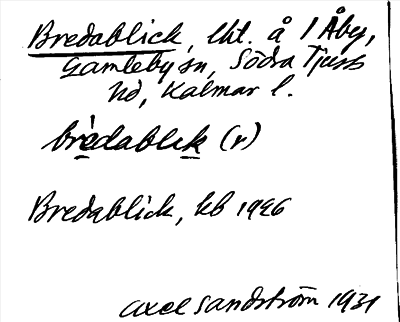 Bredablick, lht. å 1 Åby,
Gamleby sn, Södra Tjusts
hd, Kalmar l.
brèdablik (r)
Bredablick, kb 1926
Axel Sandström 1931